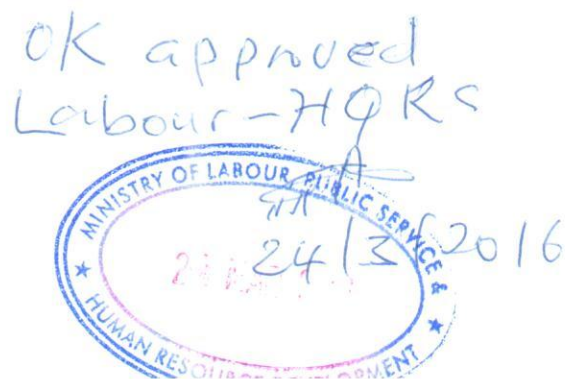 OK approved
Labour-HQRS
MINISTRY OF LABOUR PUBLIC SERVICE &
24/3/2016
HUMAN RESOURCE DEVELOPMENT